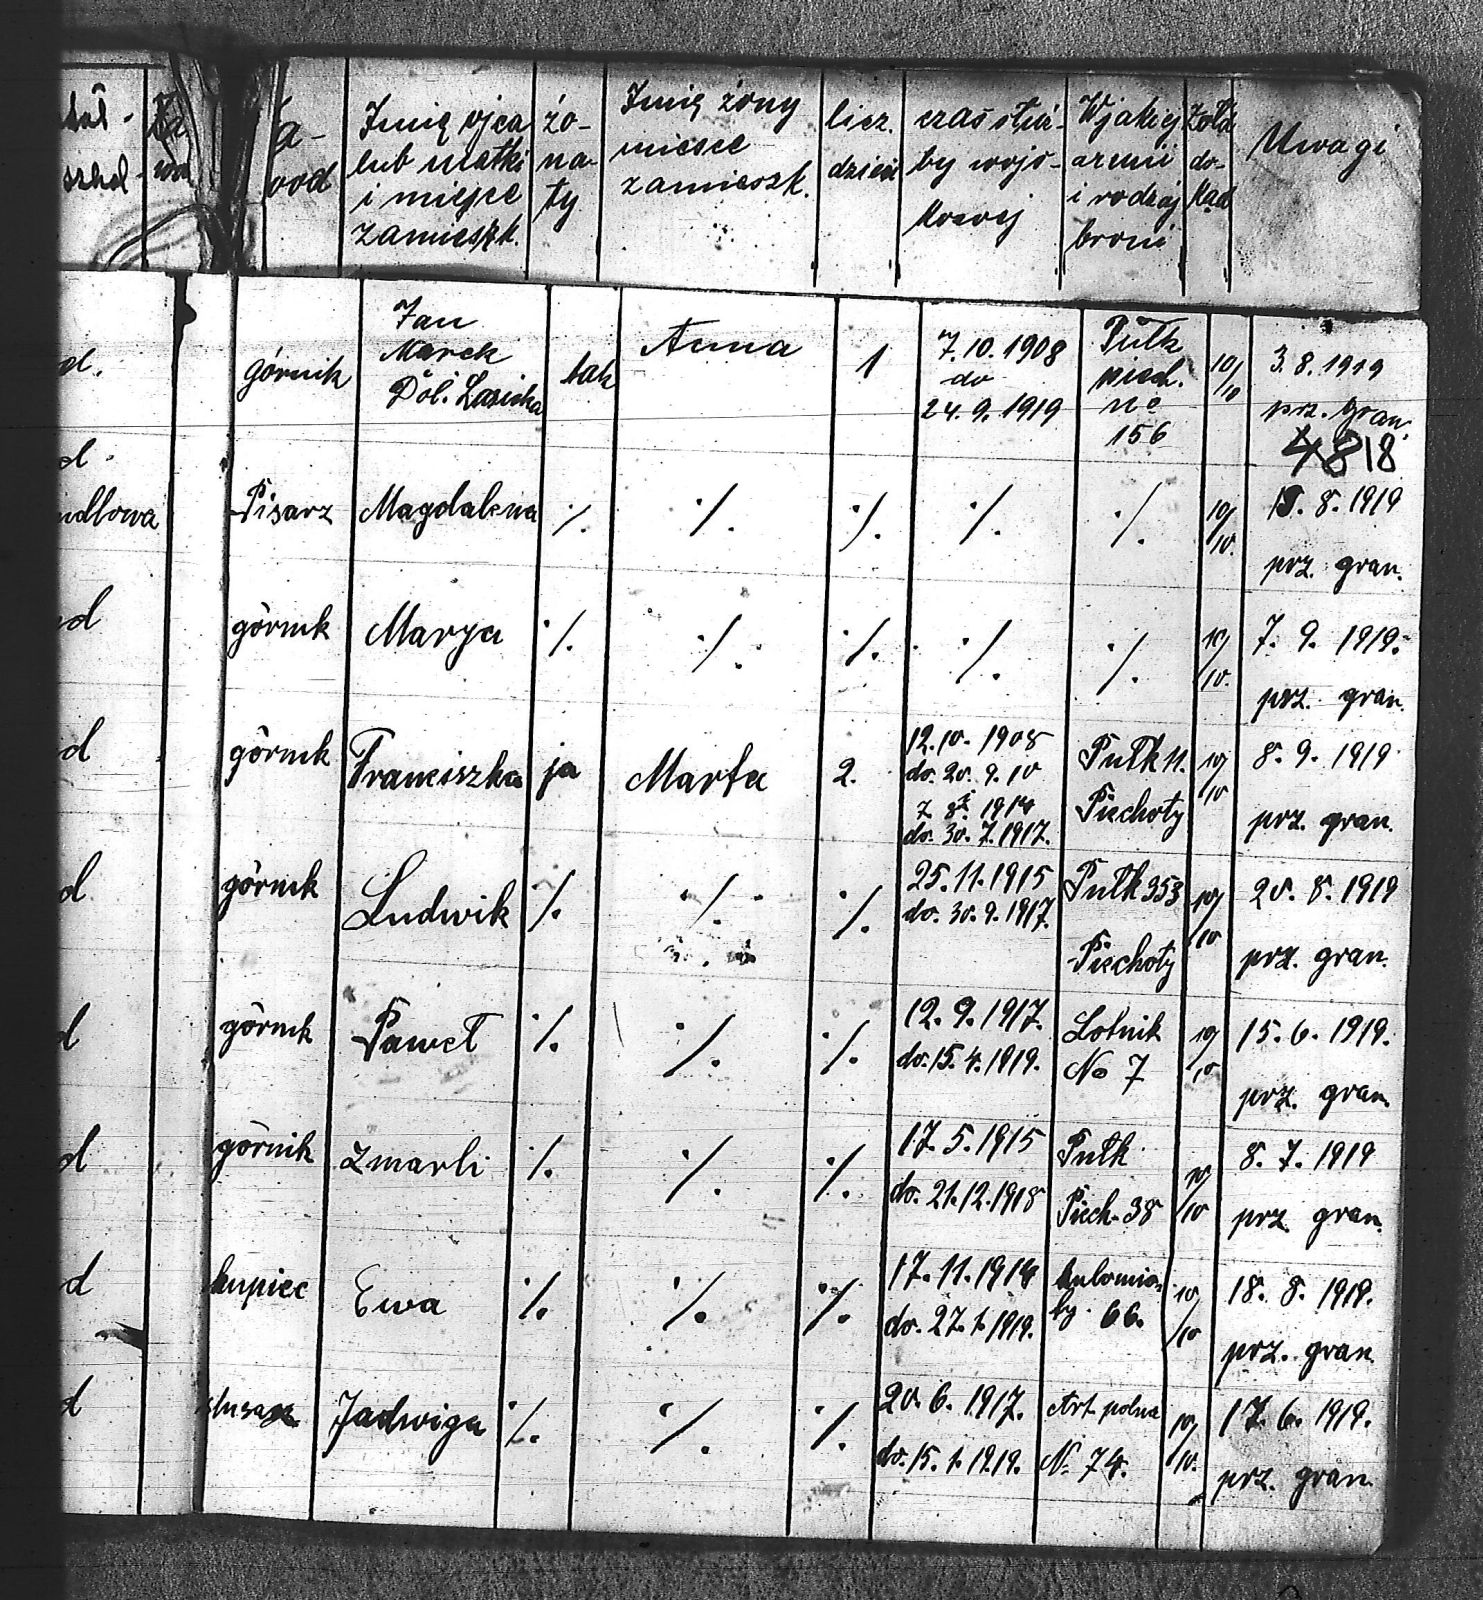 Imię ojca
lub matki
i miejsce
zamieszk.
żo-
na-
ty
Imię żony
miesce
zamieszk.
licz.
dzieci
czas służ-
by wojs-
kowej
W jakiej
armii
i rodzaj
broni
Żołd
do-
kąd
Uwagi
d.
górnik
Jan
Marek
Dol. Łaziska
tak
Anna
1
7.10.1908
do
24.9.1919
Pułk
piech.
ne
156
10/10
3.8.1919
prz. gran.
4818
d.
ndlowa
Pisarz
Magdalena
·/.
·/.
·/.
·/.
·/.
10/10.
15.8.1919
prz. gran.
d
górnik
Marya
·/.
·/.
·/.
·/.
·/.
10/10.
7.9.1919.
prz. gran.
d
górnik
Franciszka
ja
Marta
2.
12.10.1908
do. 20.9.10
z 8. 1914
do. 30.7.1917.
Pułk 11.
Piechoty
10/10
8.9.1919
prz. gran.
d
górnik
Ludwik
·/.
·/.
·/.
25.11.1915
do. 30.9.1917.
Pułk 353
Piechoty
10/10
20.8.1919
prz. gran.
d
górnik
Paweł
·/.
·/.
·/.
12.9.1917.
do. 15.4.1919.
Lotnik
No 7
10/10
15.6.1919.
prz. gran.
d
górnik
zmarli
·/.
·/.
·/.
17.5.1915
do. 21.12.1918
Pułk
Piech. 38
10/10
8.7.1919
prz. gran.
d
kupiec
Ewa
·/.
·/.
·/.
17.11.1914
do. 27.1.1919.
66.
10/10
18.8.1919.
prz. gran.
d
Jadwiga
·/.
·/.
·/.
20.6.1917.
do. 15.1.1919.
Art. polna
No 74.
10/10.
17.6.1919.
prz. gran.